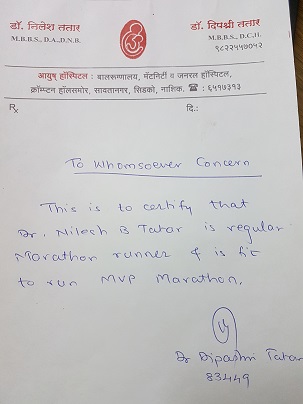 डॉ. निलेश ततार
M.B.B.S., D.A.,D.N.B.
डॉ. दिपश्री ततार
M.B.B.S., D.C.H.
९८२२५५७०५२
आयुष हॉस्पिटल : बालरूग्णालय, मॅटर्निटी व जनरल हॉस्पिटल,
क्रॉम्प्टन हॉलसमोर, सावतानगर, सिडको, नाशिक, ☎ : ६५१७३१३
Rx
दि.:
To Whomsoever Concern
This is to certify that
Dr. Nilesh B Tatar is regular
Marathon runner & is fit
to run MVP Marathon.
Dr Dipashri Tatar
83449